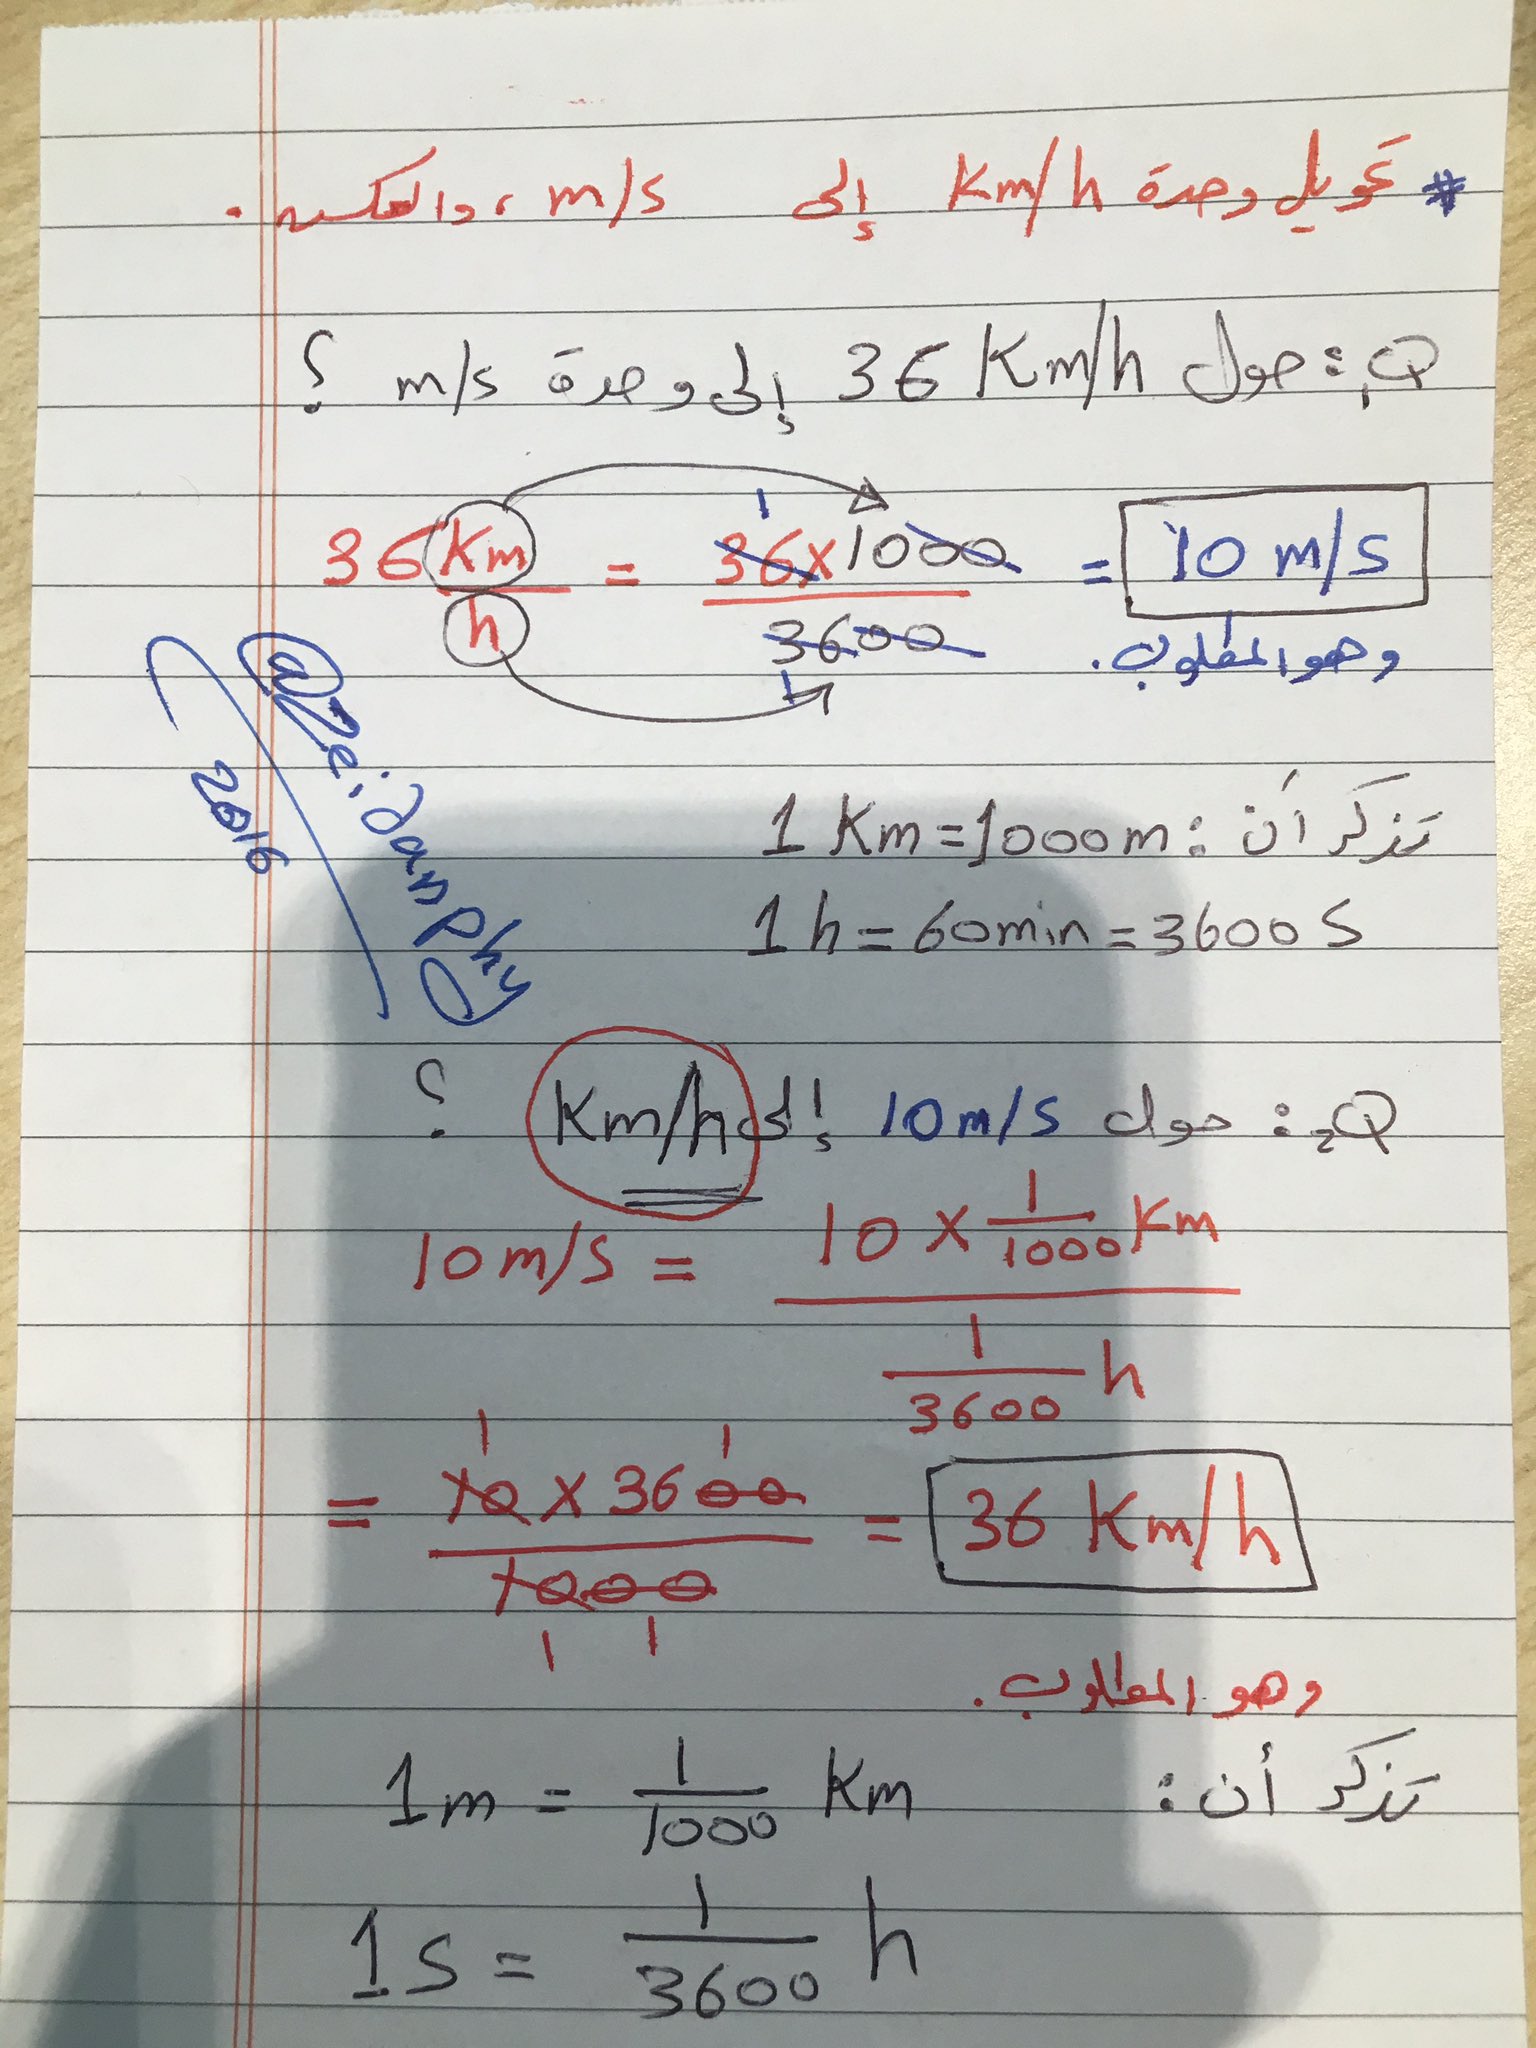 * تحويل وحدة Km/h إلى m/s ، والعكس .
Q₁: حول 36 Km/h إلى وحدة m/s ؟
36 Km/h = 36×1000/3600 = 10 m/s
1
1
وهو المطلوب.
@Zeidanphy
2016
تذكر أن : 1 Km = 1000m
1 h = 60min = 3600 S
Q₂: حول 10m/s إلى Km/h ؟
10m/s = 10 × 1/1000 Km / 1/3600 h
1 1
= 10 × 3600/1000 = 36 Km/h
1 1
وهو المطلوب.
تذكر أن : 1m = 1/1000 Km
1S = 1/3600 h